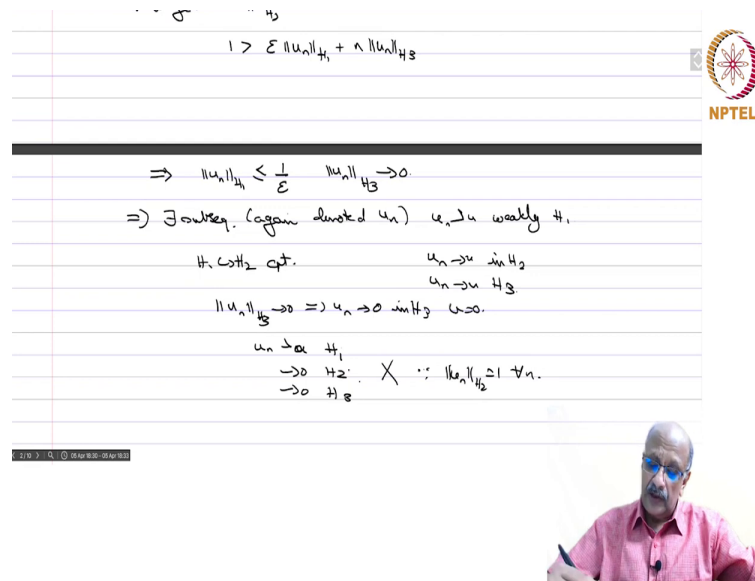 H₃
1 > ε ||uₙ||_H₁ + n ||uₙ||_H3
NPTEL
⇒ ||uₙ||_H₁ ≤ 1/ε ||uₙ||_H3 → 0.
⇒) ∃ subseq. (again denoted uₙ) uₙ ⇀ u weakly H₁
H₁ ↪ H₂ cpt. uₙ → u in H₂
uₙ → u H3.
||uₙ||_H3 → 0 ⇒ uₙ → 0 in H3 u=0.
uₙ ⇀ H₁
→0 H2. X ∵ ||uₙ||_H₂ = 1 ∀n.
→0 H3
2/10 05 Apr 18:30 - 05 Apr 18:33